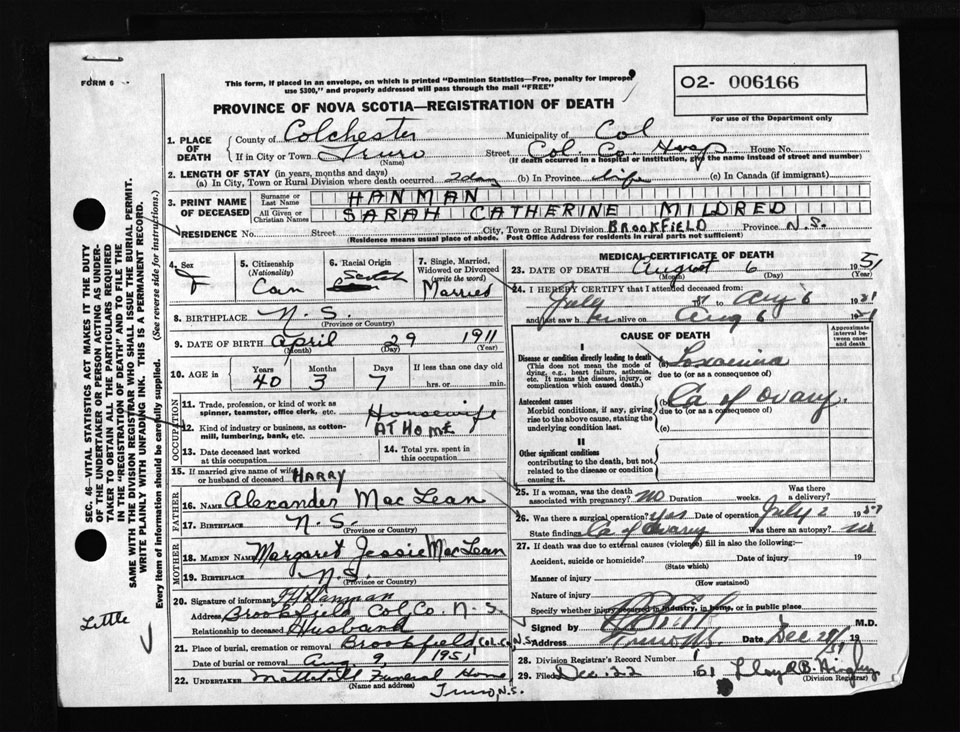 FORM 6
This form, if placed in an envelope, on which is printed "Dominion Statistics—Free, penalty for improper
use $300," and properly addressed will pass through the mail "FREE"
O2- 006166
For use of the Department only
PROVINCE OF NOVA SCOTIA—REGISTRATION OF DEATH
1. PLACE OF DEATH
County of Colchester Municipality of Col
If in City or Town Truro (Name) Street Col. Co. Hosp. House No.
(If death occurred in a hospital or institution, give the name instead of street and number)
2. LENGTH OF STAY (in years, months and days)
(a) In City, Town or Rural Division where death occurred 2 day (b) In Province life (c) In Canada (if immigrant)
3. PRINT NAME OF DECEASED
Surname or Last Name HANMAN
All Given or Christian Names SARAH CATHERINE MILDRED
RESIDENCE No. Street City, Town or Rural Division BROOKFIELD Province N.S.
(Residence means usual place of abode. Post Office Address for residents in rural parts not sufficient)
4. Sex F
5. Citizenship (Nationality) Can
6. Racial Origin Scotch
7. Single, Married, Widowed or Divorced (write the word) Married
8. BIRTHPLACE N.S.
(Province or Country)
9. DATE OF BIRTH April 29 1911
(Month) (Day) (Year)
10. AGE in Years 40 Months 3 Days 7 If less than one day old hrs. or min.
OCCUPATION
11. Trade, profession, or kind of work as spinner, teamster, office clerk, etc. Housewife
12. Kind of industry or business, as cotton-mill, lumbering, bank, etc. AT HOME
13. Date deceased last worked at this occupation
14. Total yrs. spent in this occupation
15. If married give name of wife or husband of deceased HARRY
FATHER
16. NAME Alexander MacLean
17. BIRTHPLACE N.S.
(Province or Country)
MOTHER
18. MAIDEN NAME Margaret Jessie MacLean
19. BIRTHPLACE N.S.
(Province or Country)
20. Signature of informant Hanman
Address Brookfield Col. Co. N.S.
Relationship to deceased Husband
21. Place of burial, cremation or removal Brookfield Col. Co. N.S.
Date of burial or removal Aug 9, 1951
22. UNDERTAKER Mattatall Funeral Home
(Name and address) Truro, N.S.
MEDICAL CERTIFICATE OF DEATH
23. DATE OF DEATH August 6 1951
(Month) (Day) (Year)
24. I HEREBY CERTIFY that I attended deceased from:
July to Aug 6 1951
and last saw h er alive on Aug 6 1951
CAUSE OF DEATH
Approximate interval between onset and death
I
Disease or condition directly leading to death (a) Toxaemia
(This does not mean the mode of dying, e.g., heart failure, asthenia, etc. It means the disease, injury, or complication which caused death.)
due to (or as a consequence of)
Antecedent causes (b) Ca of ovary.
Morbid conditions, if any, giving rise to the above cause, stating the underlying condition last.
due to (or as a consequence of)
(c)
II
Other significant conditions
contributing to the death, but not related to the disease or condition causing it.
25. If a woman, was the death associated with pregnancy? no Duration weeks. Was there a delivery?
26. Was there a surgical operation? yes Date of operation July 2 19
State findings Ca of Ovary Was there an autopsy? no
27. If death was due to external causes (violence) fill in also the following:—
Accident, suicide or homicide? Date of injury 19
(State which)
Manner of injury
(How sustained)
Nature of injury
Specify whether injury occurred in industry, in home, or in public place
Signed by M.D.
Address Truro N.S. Date Dec 19 51
28. Division Registrar's Record Number
29. Filed Dec. 22 1951 Lloyd B.
(Division Registrar)
SEC. 46—VITAL STATISTICS ACT MAKES IT THE DUTY
OF THE UNDERTAKER OR PERSON ACTING AS UNDER-
TAKER TO OBTAIN ALL THE PARTICULARS REQUIRED
IN THE "REGISTRATION OF DEATH" AND TO FILE THE
SAME WITH THE DIVISION REGISTRAR WHO SHALL ISSUE THE BURIAL PERMIT.
WRITE PLAINLY WITH UNFADING INK. THIS IS A PERMANENT RECORD.
Every item of information should be carefully supplied. (See reverse side for instructions.)
Little